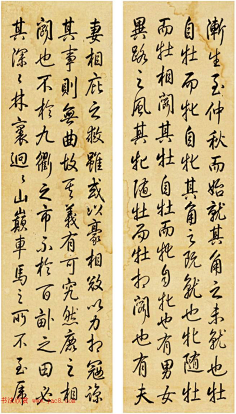 漸生至仲秋而始就其角之未就也牡
自牡而牝自牝其角之既就也牝隨牡
而牡相鬥其牡自牡而牝自牝也有男女
異路之風其牝隨牡而牡相鬥也有夫
妻相庇之救雖或以豪相殺以力相冠諒
其事則無曲故其義有可究然鹿之相
鬥也不於九衢之市不於百畝之田必
其深深林裏迴迴山巔車馬之所不至屠